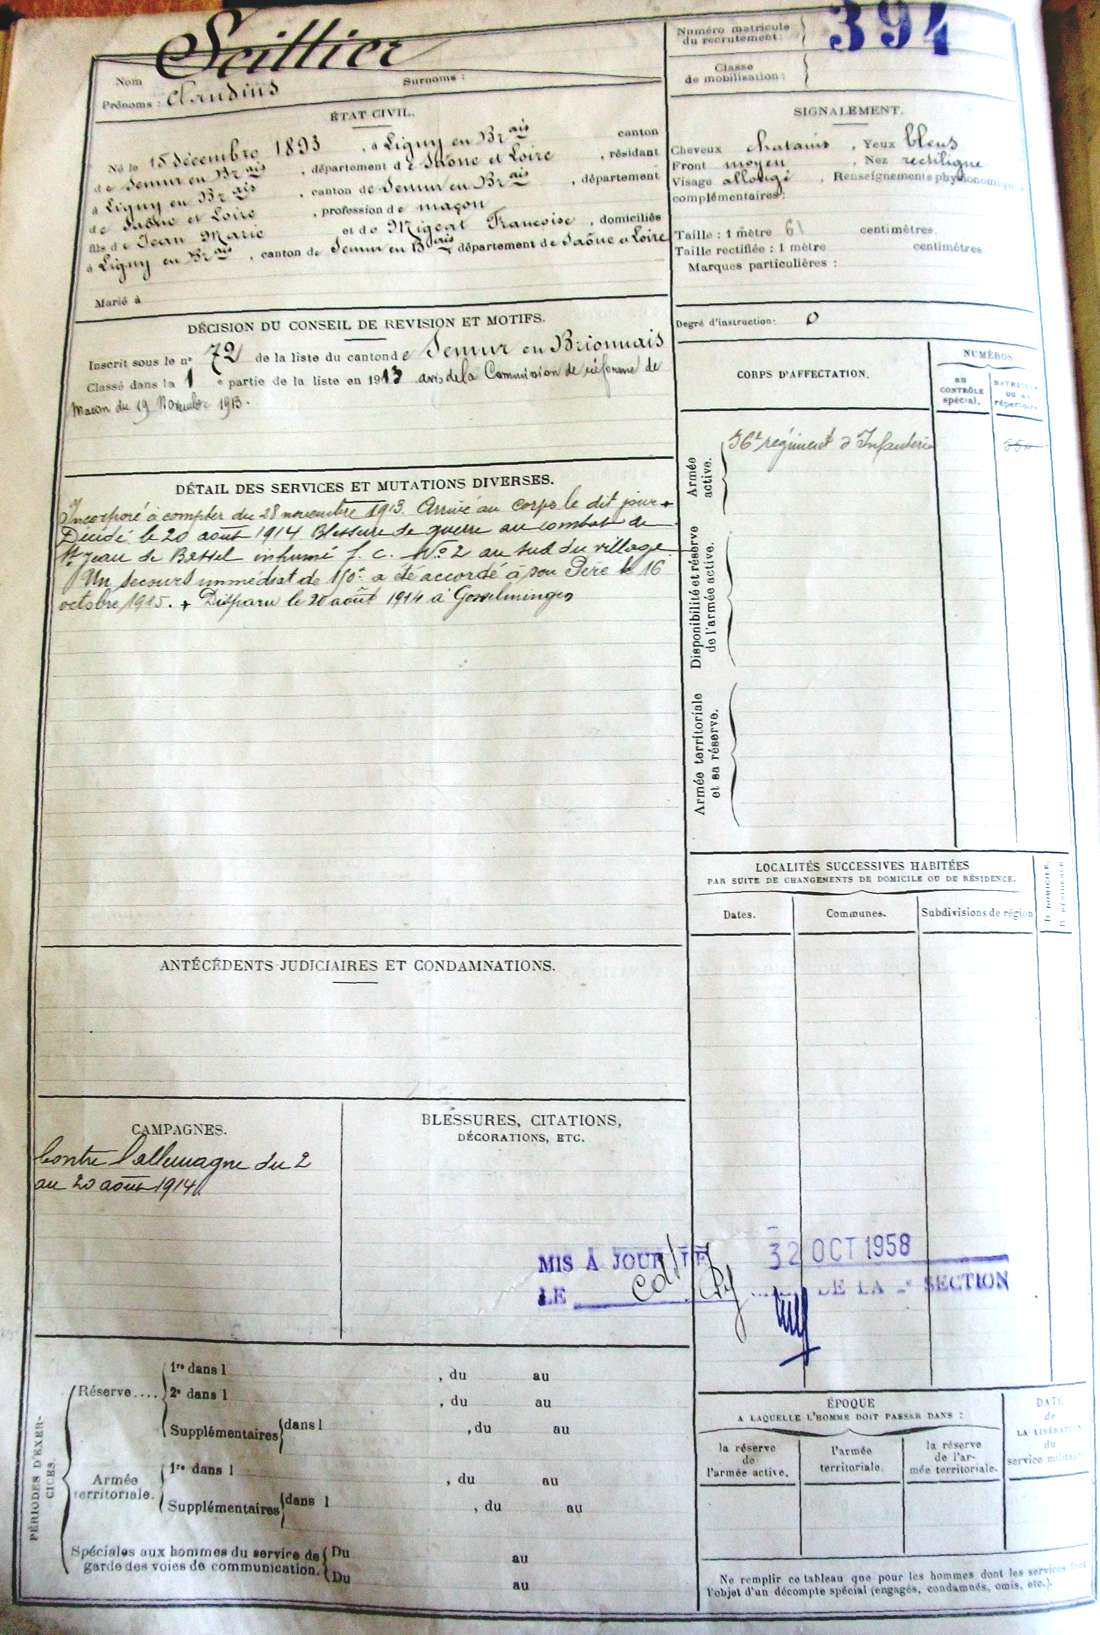 Nom Seillier Surnoms :
Prénoms : Claudius
Numéro matricule du recrutement : 394
Classe de mobilisation :
ÉTAT CIVIL.
Né le 15 décembre 1893, à Ligny en Brais canton
de Semur en Brais, département de Saône et Loire, résidant
à Ligny en Brais, canton de Semur en Brais, département
de Saône et Loire, profession de maçon
fils de Jean Marie et de Migeat Francoise, domiciliés
à Ligny en Brais, canton de Semur en Brais département de Saône et Loire
Marié à
SIGNALEMENT.
Cheveux chatains, Yeux bleus
Front moyen, Nez rectiligne
Visage allongé, Renseignements physionomiques
complémentaires :
Taille : 1 mètre 61 centimètres.
Taille rectifiée : 1 mètre centimètres
Marques particulières :
Degré d'instruction : 0
DÉCISION DU CONSEIL DE REVISION ET MOTIFS.
Inscrit sous le n° 72 de la liste du canton de Semur en Brionnais
Classé dans la 1 e partie de la liste en 1913 avis de la Commission de réforme de
Macon du 19 Novembre 1913.
CORPS D'AFFECTATION.
NUMÉROS
AU CONTRÔLE spécial.
MATRICULE OU AU répertoire
Armée active.
56e régiment d'Infanterie
Disponibilité et réserve de l'armée active.
Armée territoriale et sa réserve.
DÉTAIL DES SERVICES ET MUTATIONS DIVERSES.
Incorporé à compter du 28 novembre 1913. Arrivé au corps le dit jour +
Décédé le 20 août 1914 Blessure de guerre au combat de
St Jean de Bassel inhumé f. c. No 2 au sud du village
Un secours immédiat de 150f a été accordé à son Père le 16
octobre 1915. + Disparu le 20 août 1914 à Gosselminges
LOCALITÉS SUCCESSIVES HABITÉES
PAR SUITE DE CHANGEMENTS DE DOMICILE OU DE RÉSIDENCE.
Dates. Communes. Subdivisions de région
D DOMICILE R RÉSIDENCE
ANTÉCÉDENTS JUDICIAIRES ET CONDAMNATIONS.
CAMPAGNES.
Contre l'allemagne du 2
au 20 août 1914
BLESSURES, CITATIONS,
DÉCORATIONS, ETC.
MIS À JOUR LE 32 OCT 1958
LE DE LA SECTION
PÉRIODES D'EXERCICES.
Réserve....
1re dans l , du au
2e dans l , du au
Supplémentaires dans l , du au
Armée territoriale.
1re dans l , du au
Supplémentaires dans l , du au
Spéciales aux hommes du service de garde des voies de communication.
Du au
Du au
ÉPOQUE
A LAQUELLE L'HOMME DOIT PASSER DANS :
la réserve de l'armée active.
l'armée territoriale.
la réserve de l'armée territoriale.
DATE
de
LA LIBÉRATION
du
service militaire
Ne remplir ce tableau que pour les hommes dont les services font
l'objet d'un décompte spécial (engagés, condamnés, omis, etc.).